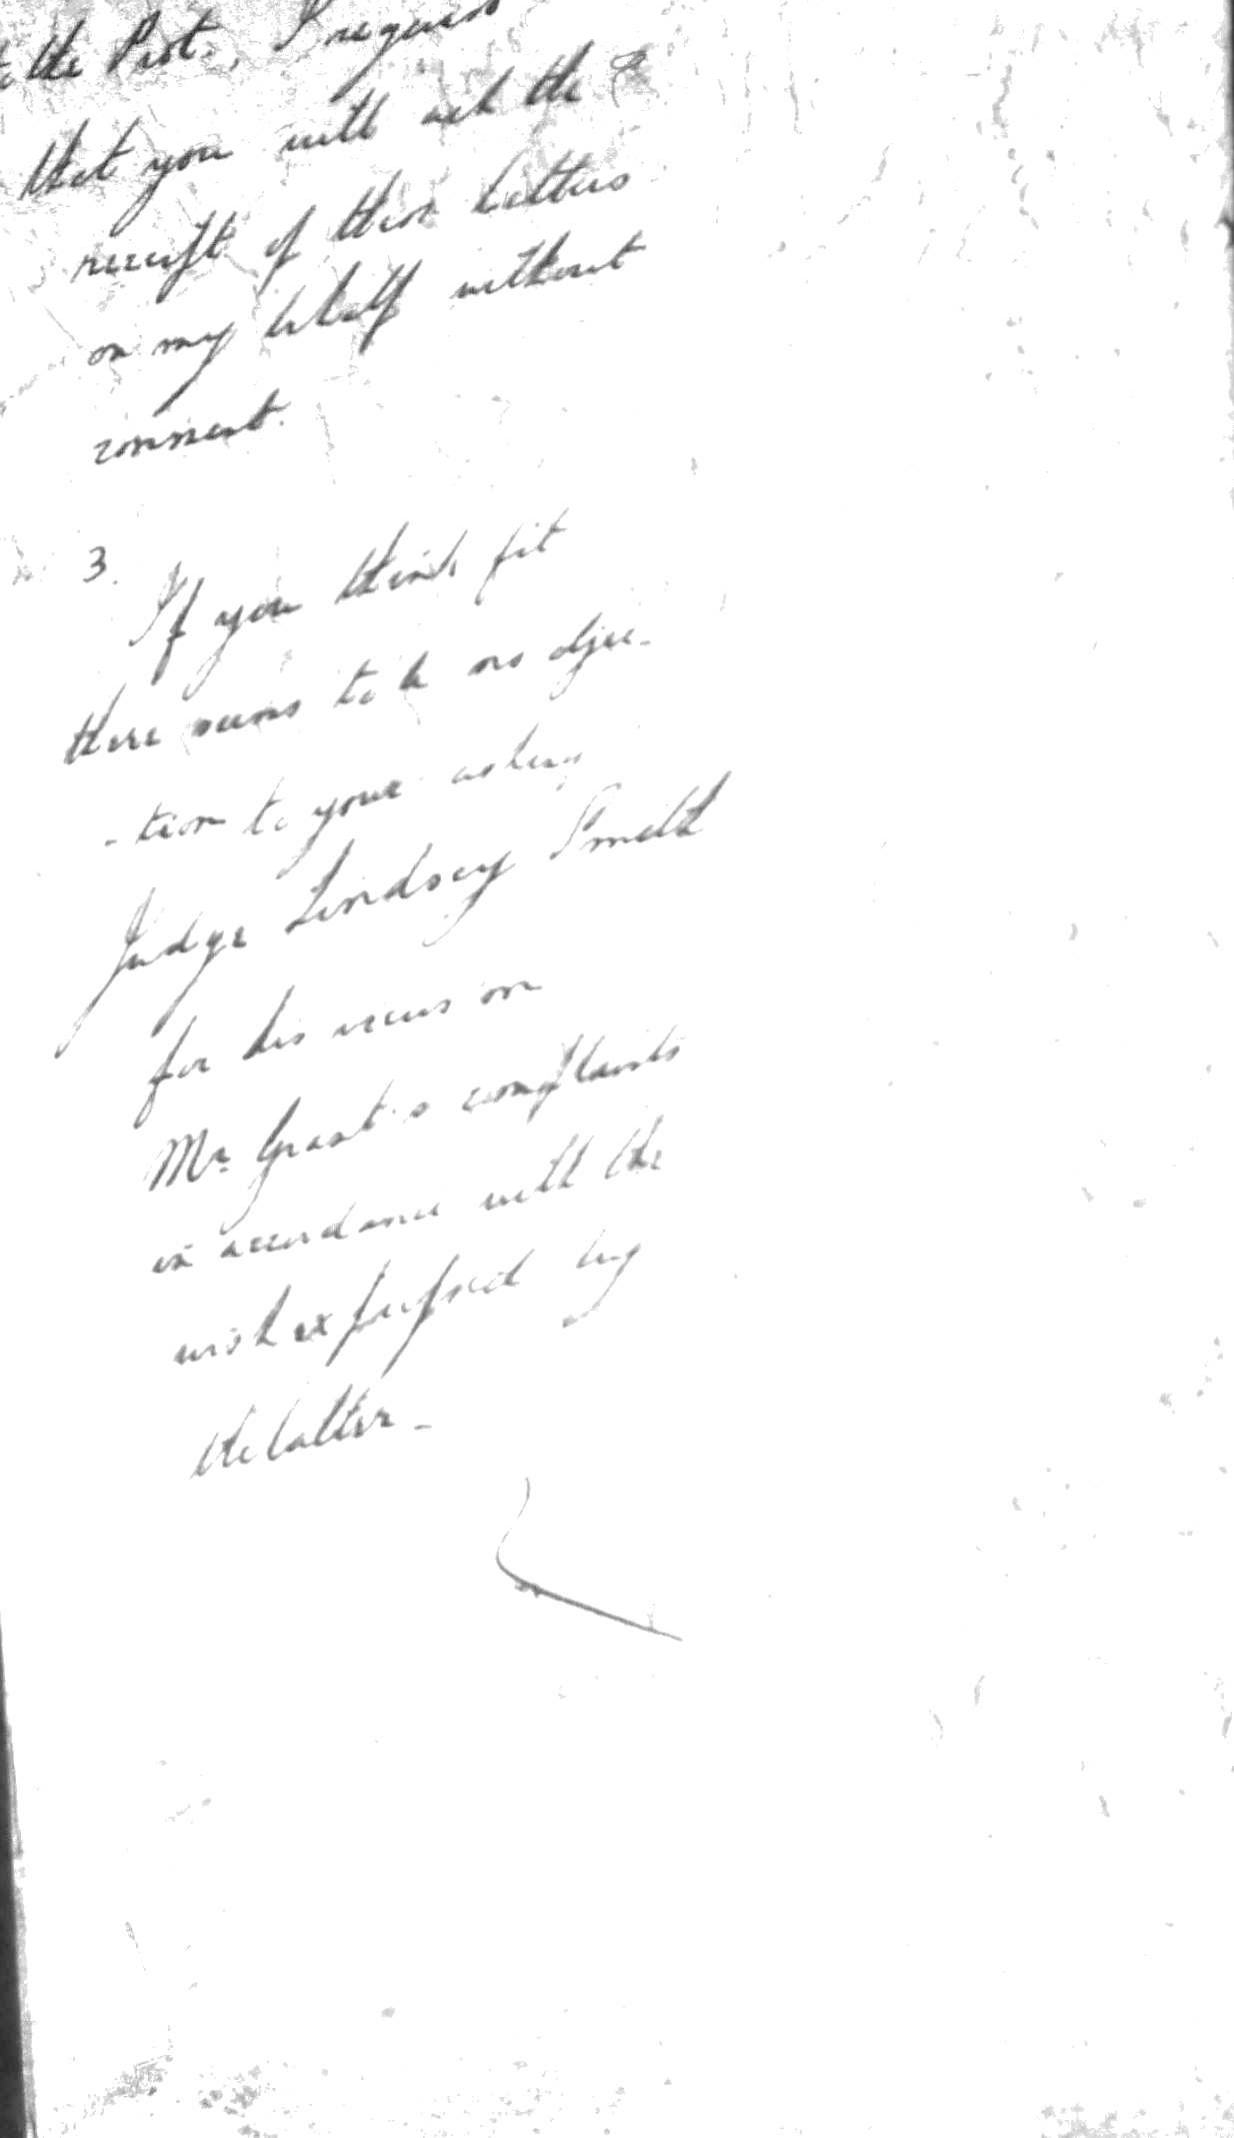 to the Prot., I request
that you will ack the
receipt of these letters
on my behalf without
comment.
3.
If you think fit
there seems to be no objec-
-tion to your asking
Judge Lindsey Smith
for his views on
Mr. Grant's complaints
in accordance with the
wish expressed by
the latter -